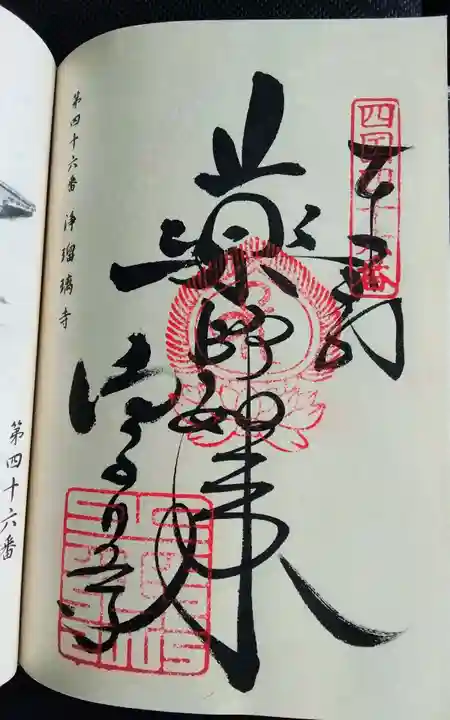 四国四十六番
奉拝
薬師如来
浄瑠璃寺
第四十六番 浄瑠璃寺
第四十六番